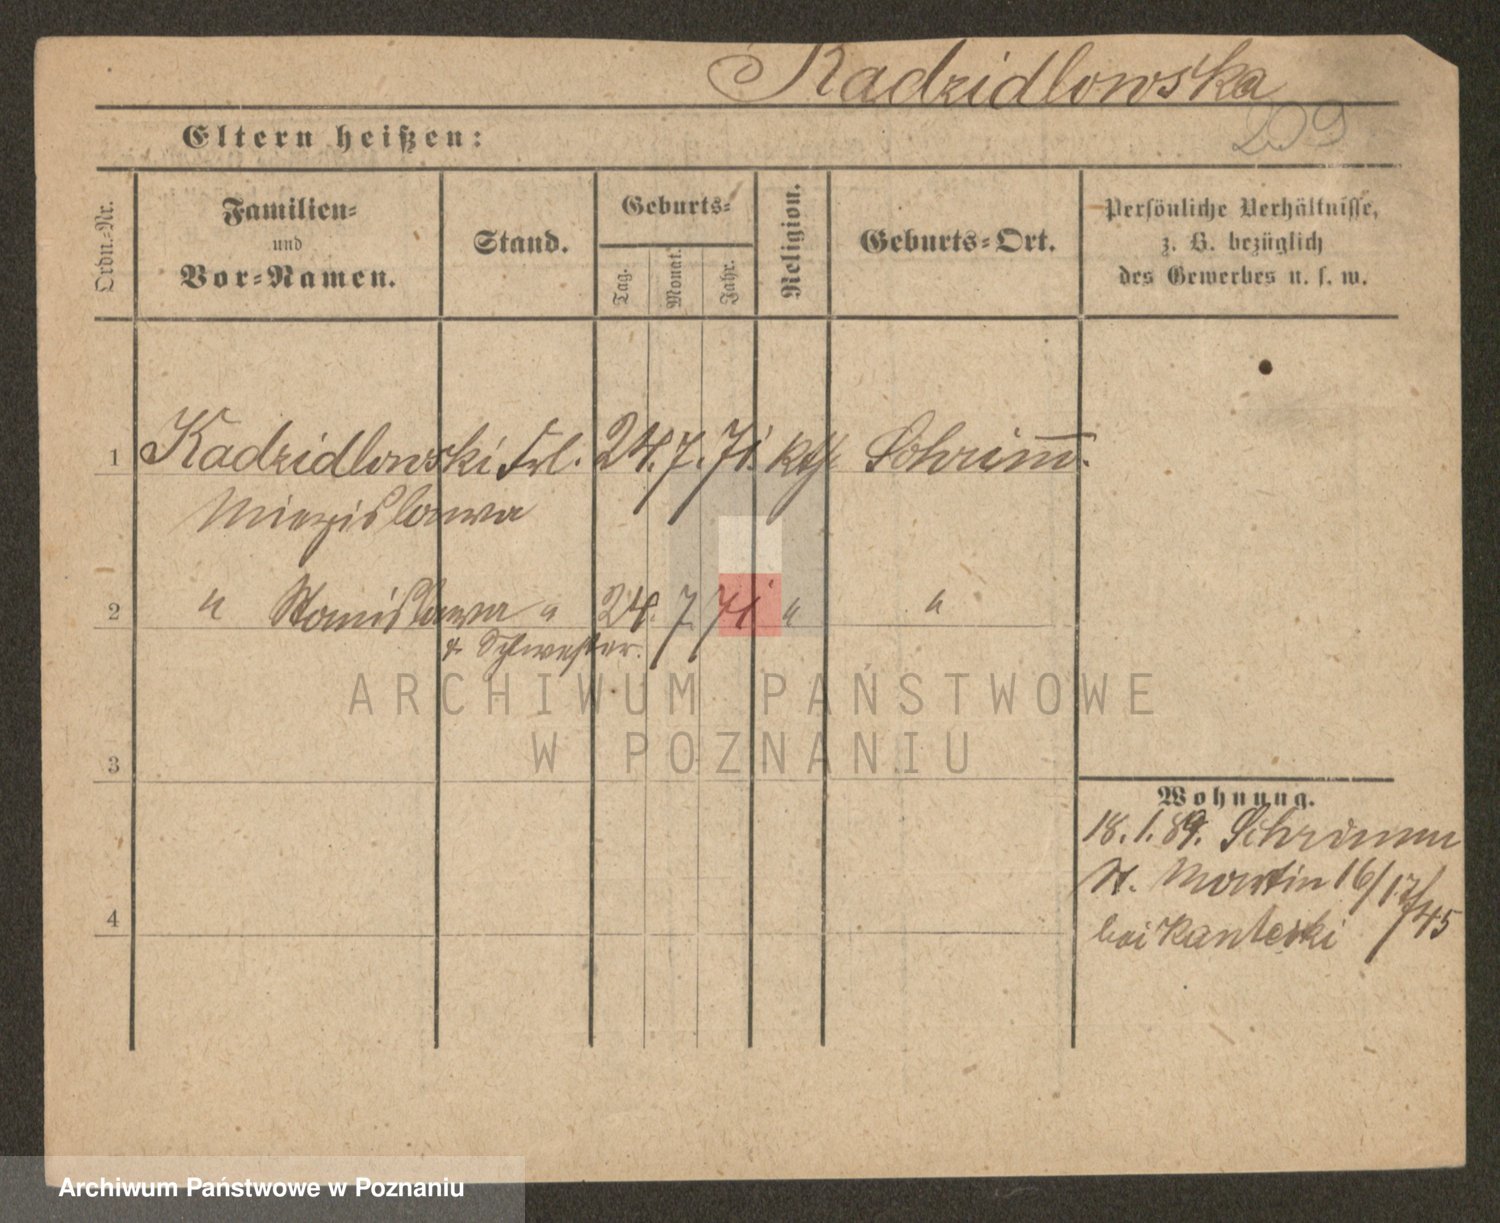 Kadzidlowska
209
Eltern heißen:
Ordn.-Nr.
Familien-
und
Vor-Namen.
Stand.
Geburts-
Tag.
Monat.
Jahr.
Religion.
Geburts-Ort.
Persönliche Verhältnisse,
z. B. bezüglich
des Gewerbes u. s. w.
1 Kadzidlowski Frl. 24. 7. 71. kth Schrimm.
Miezislawa
2 " Stanislawa " 24. 7. 71 " "
Schwester.
ARCHIWUM PAŃSTWOWE
W POZNANIU
3
Wohnung.
18. 1. 89. Schrimm
St. Martin 16/17/45
bei Kanteski
4
Archiwum Państwowe w Poznaniu